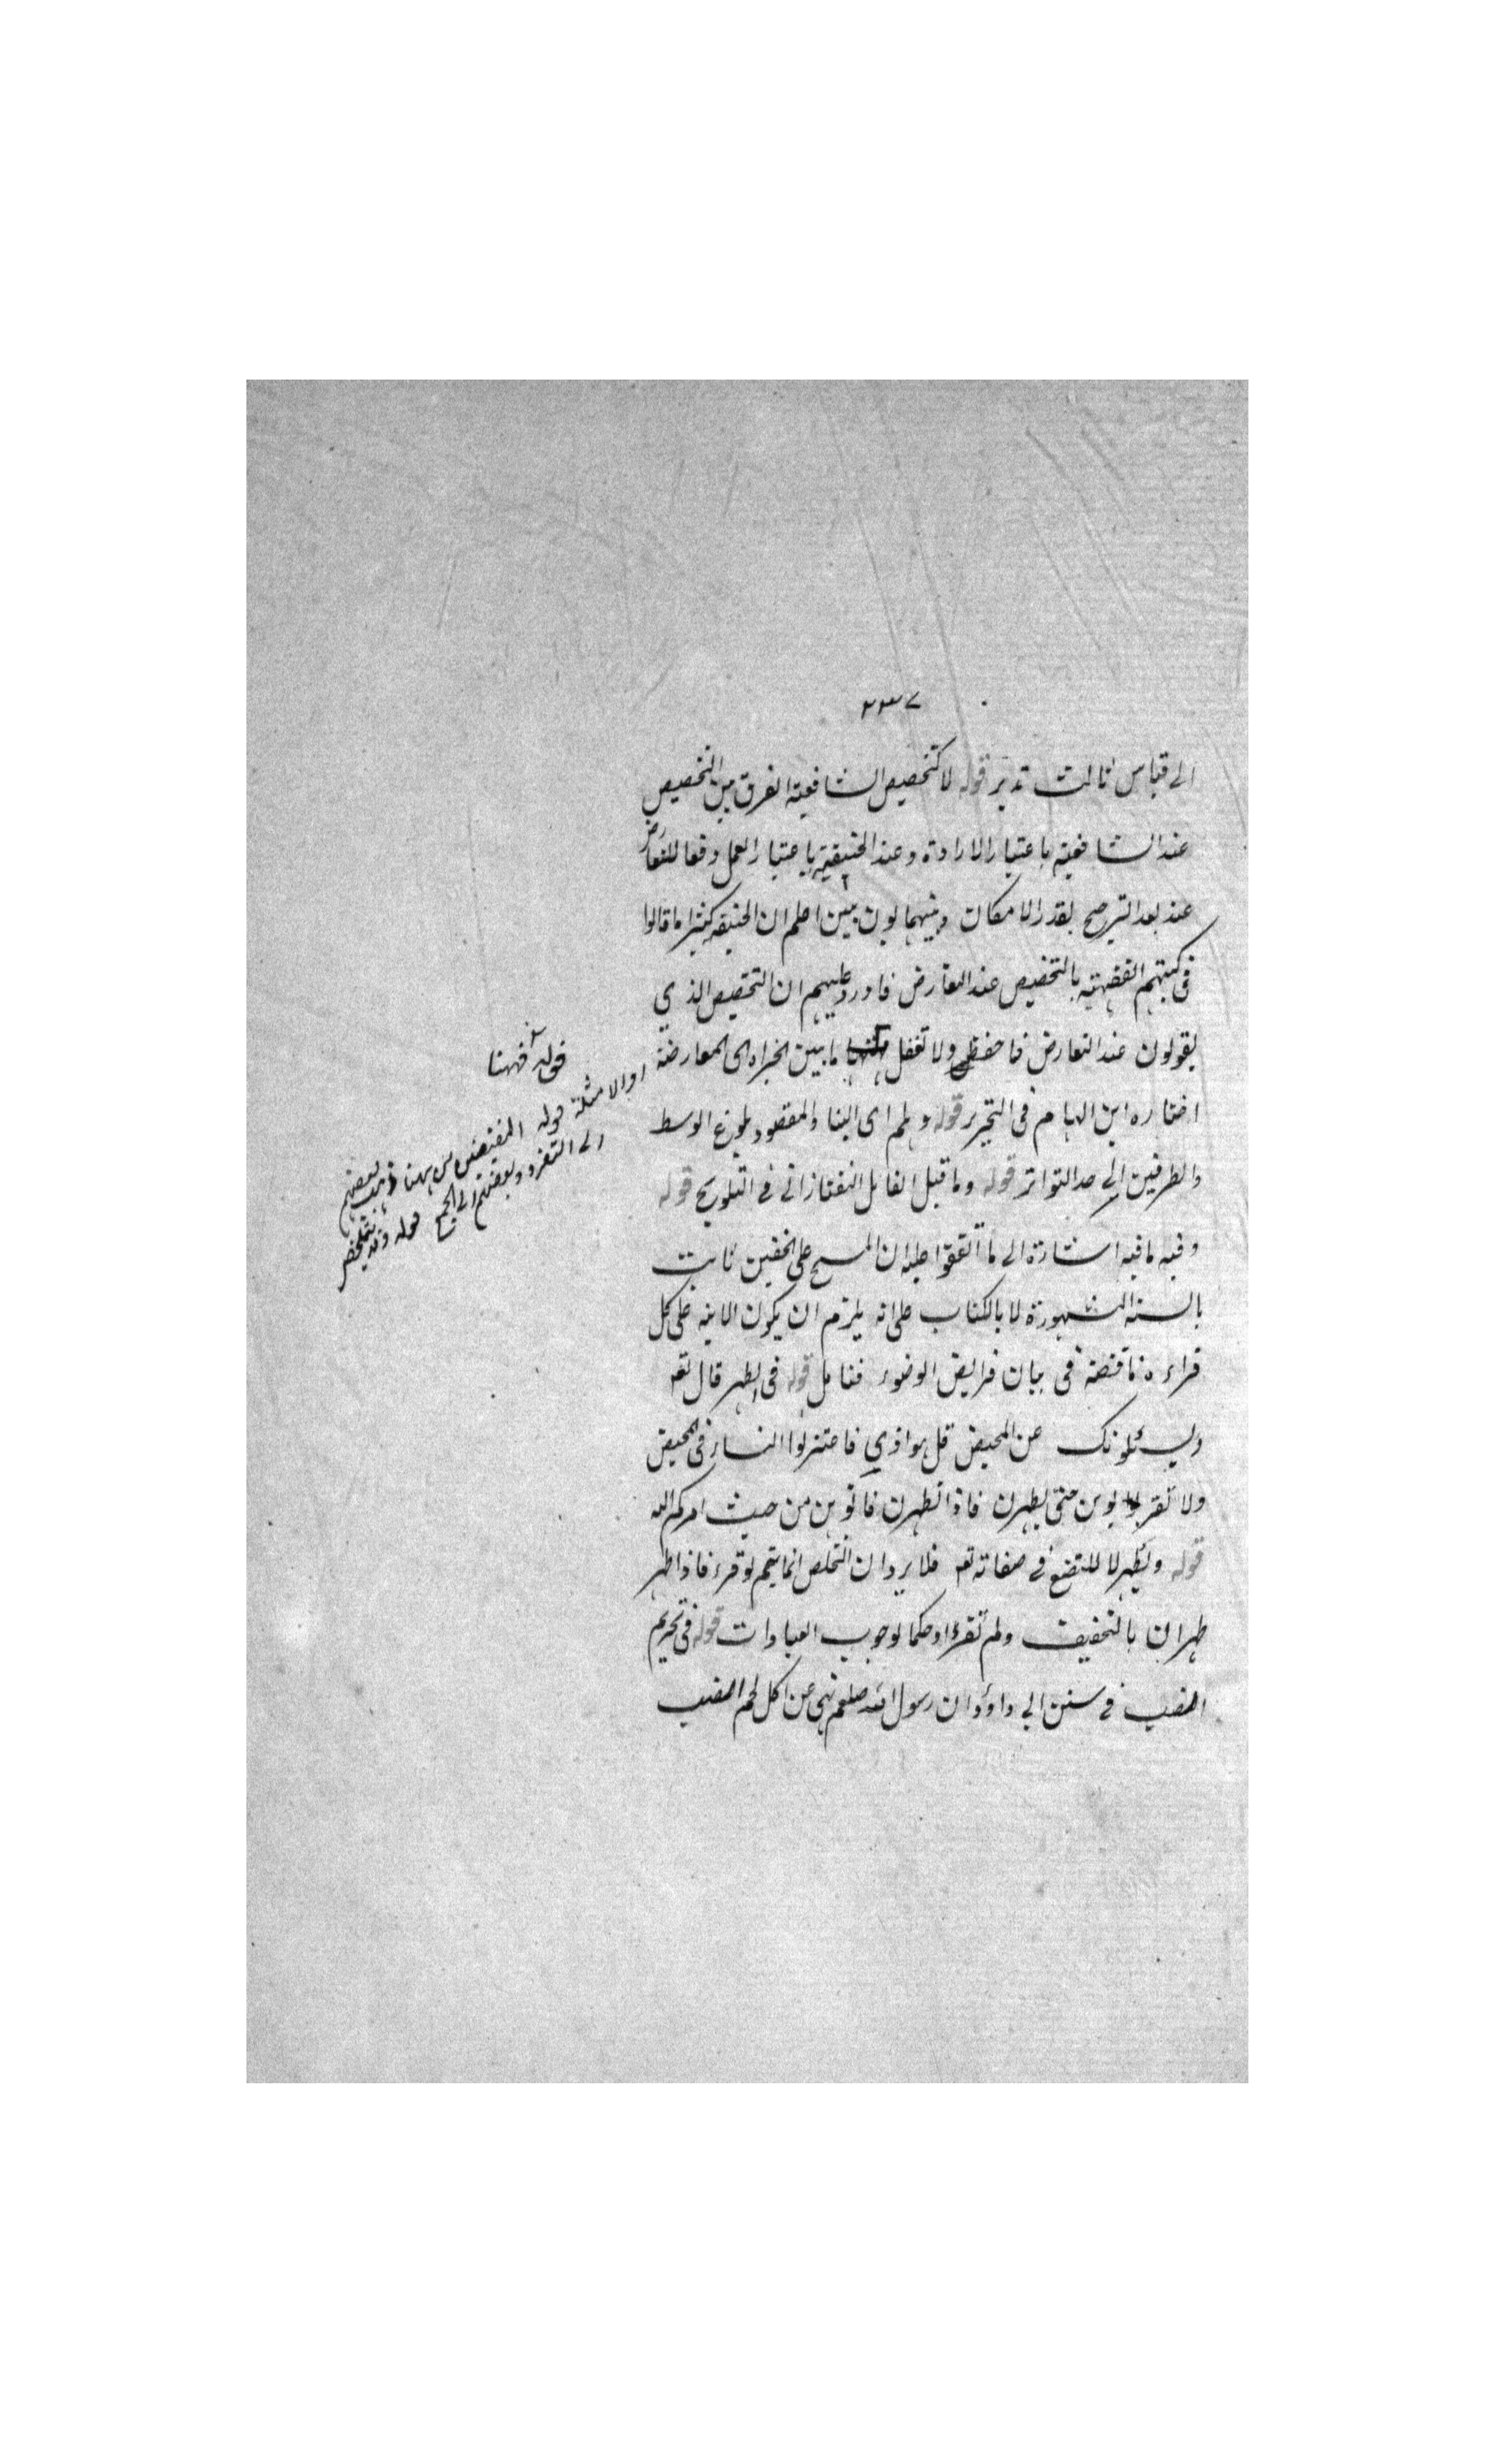 ٢٣٧
الى قياس ثالث تدبر قوله لا كتخصيص الشافعية الفرق بين التخصيص
عند الشافعية باعتبار الارادة وعند الحنيفية باعتبار العمل دفعا للتعارض
عند بعد الترجيح بقدر الامكان وبينهما بون بين اعلم ان الحنيفة كثيرا ما قالوا
فى كتبهم الفقهية بالتخصيص عند التعارض فاورد عليهم ان التخصيص الذي
يقولون عند التعارض فاحفظ ولا تغفل ما بين الخبراه اى المعارضة
اختاره ابن الهمام فى التحرير قوله ولهم اى البنا والمقصود بلوغ الوسط
والطرفين الى حد التواتر قوله وما قيل القائل التفتازانى فى التلويح قوله
وفيه ما فيه اشارة الى ما اتفقوا عليه ان المسح على الخفين ثابت
بالسنة المشهورة لا بالكتاب على انه يلزم ان يكون الاية على كل
قراءة ناقصة فى بيان فرايض الوضوء فتامل قوله فى الطهر قال تعه
ويسئلونك عن المحيض قل هو اذي فاعتزلوا النساء فى المحيض
ولا تقربوهن حتى يطهرن فاذا تطهرن فاتوهن من حيث امركم الله
قوله وتطهر لا للتضع فى صفاته تعه فلا يرد ان التخلص انما يتم لو قرء فاذا طهر
طهران بالتخفيف ولم تقرء او حكما لوجوب العبادات قوله فى تحريم
الضب فى سنن ابي داؤد ان رسول الله صلعم نهى عن اكل لحم الضب
قوله فههنا
او الامثلة قوله المقيضين ههنا ذهب بعضهم
الى التفرد وبعضهم الى الجمع قوله وقد